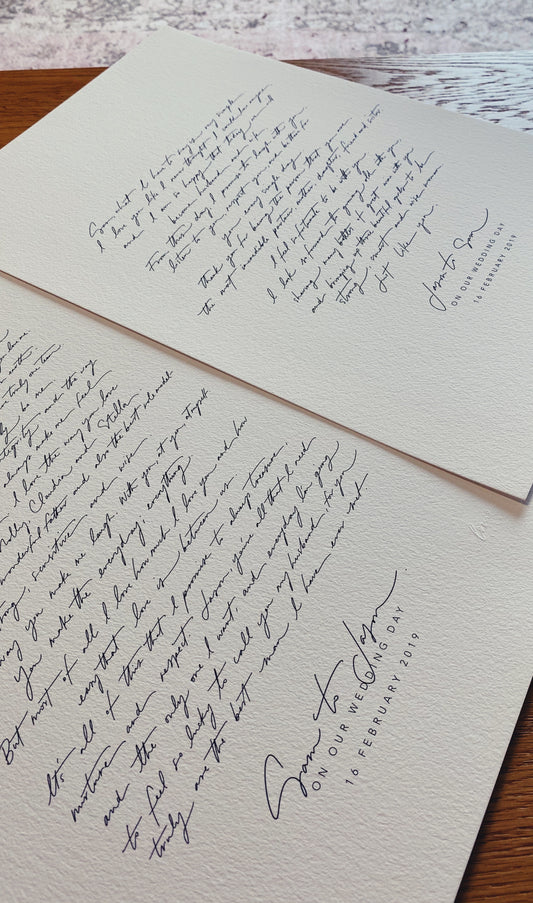 Somewhat I have to
I love you like I
and I am so happy that today we will
become husband and wife.
From this day I promise to laugh with you
listen to you respect you and
you every single day.
Thank you for being the person that you are
the most incredible partner, mother, daughter, friend and sister
I feel so fortunate to be with you
I look so forward to growing old with you
sharing many bottles of good wine with you
and bringing up three beautiful girls to be
strong, smart and wise women
just like you.
Jason to Sam
ON OUR WEDDING DAY
16 FEBRUARY 2019
truly one team
be me.
integrity and the way
always make me feel
I love the way you love
Molly, Claudia and Stella
wonderful father and also the best role model
strong, sensitive and wise
way you make me laugh. With you, at you, myself
You make the everyday, everything.
But most of all I love how much I love you and how
easy that love is between us.
It's all of this that I promise to always treasure.
nurture and respect Jason, you're all that I need
and the only one I want, and everyday I'm going
to feel so lucky to call you my husband, for you
truly are the best man I have ever met.
Sam to Jason
ON OUR WEDDING DAY
16 FEBRUARY 2019